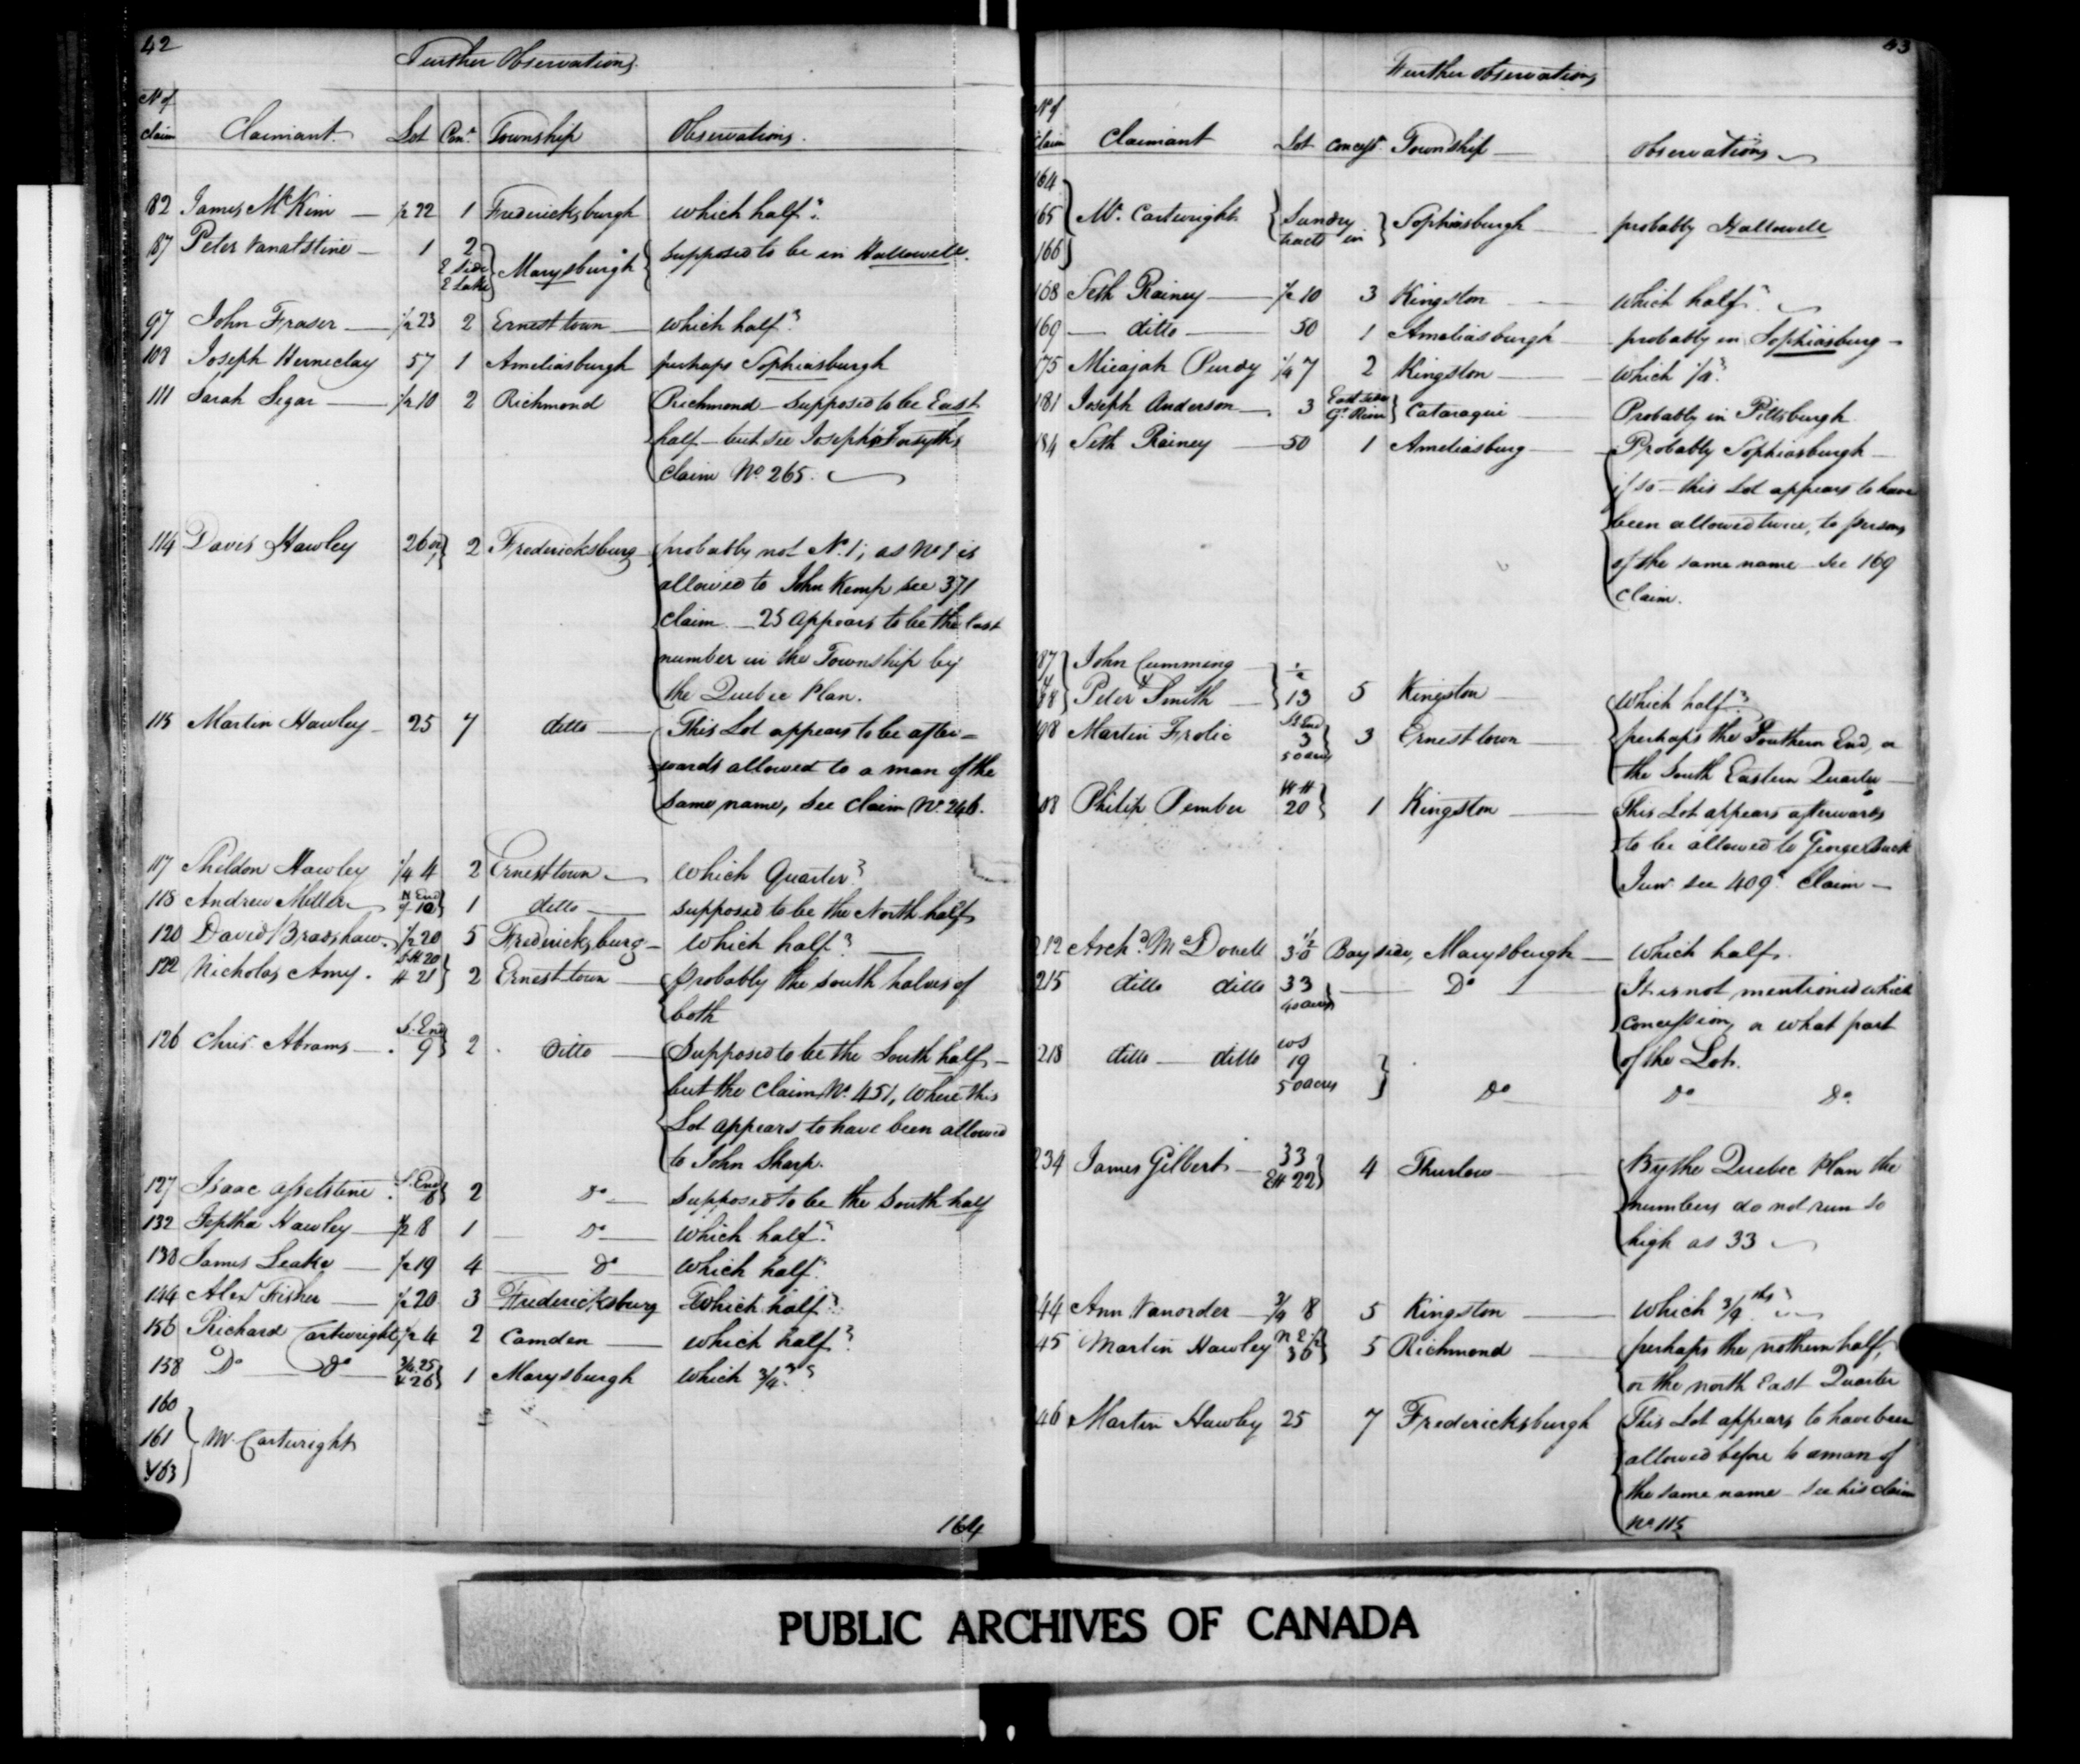 42
Further Observations.
No of
Claim Claimant. Lot Con.n Township Observations.
82 James McKim — 1/2 22 1 Fredericksburgh which half?
87 Peter Vanalstine — 1 2 E Side E Lake } Marysburgh { supposed to be in Hallowell.
97 John Fraser — 1/2 23 2 Ernest town — which half?
108 Joseph Herneclay 57 1 Ameliasburgh perhaps Sophiasburgh
111 Sarah Segar — 1/2 10 2 Richmond Richmond — Supposed to be East
half — but see Joseph Forsyth's
Claim No 265.
114 Davis Hawley 26 or 1 } 2 Fredericksburg probably not No. 1; as No 1 is
allowed to John Kemp see 371
claim — 25 appears to be the last
number in the Township by
the Quebec Plan.
115 Martin Hawley — 25 7 ditto — This Lot appears to be after=
wards allowed to a man of the
same name, see Claim No. 246.
117 Sheldon Hawley 1/4 4 2 Ernest town — which Quarter?
118 Andrew Miller N End of 10 } 1 ditto — supposed to be the North half
120 David Bradshaw. 1/2 20 5 Fredericksburg — which half? —
122 Nicholas Amy. S.H 20 H 21 } 2 Ernest town — probably the south halves of
both
126 Chris. Abrams — S. End 9 } 2 Ditto — Supposed to be the South half —
but the Claim No. 451, where this
Lot appears to have been allowed
to John Sharp.
127 Isaac Asselstine. S. End 8 } 2 Do — supposed to be the South half
132 Jeptha Hawley — 1/2 8 1 — Do — which half?
138 James Leake — 1/2 19 4 — Do — which half.
144 Alexr Fisher — 1/2 20 3 Fredericksburg Which half?
156 Richard Cartwright 1/2 4 2 Camden — which half?
158 Do — Do — 3/4 25 & 26 } 1 Marysburgh which 3/4?
160
161 } Mr. Cartwright
& 163
164
43
Further Observations
No of
Claim Claimant Lot Concess.n Township — Observations
164
165 } Mr. Cartwright { Sundry tracts in } Sophiasburgh — probably Hallowell
166
168 Seth Rainey — 1/2 10 3 Kingston — Which half?
169 — ditto — 50 1 Ameliasburgh — probably in Sophiasburg —
175 Micajah Purdy 1/4 7 2 Kingston — which 1/4?
181 Joseph Anderson — 3 East side Gt River } Cataraqui — Probably in Pittsburgh
184 Seth Rainey — 50 1 Ameliasburg — Probably Sophiasburgh —
if so — this Lot appears to have
been allowed twice, to persons
of the same name — See 169
Claim.
187 John Cumming 1/2
& 188 } Peter Smith — 13 5 Kingston — Which half?
198 Martin Frolic St End 3 50 acres } 3 Ernest town — perhaps the Southern End, or
the South Eastern Quarter —
Philip Pember W H 20 } 1 Kingston — This Lot appears afterwards
to be allowed to George Buck
Junr. see 409th Claim —
212 Archd. McDonell 1/2 30 Bay side, Marysburgh — Which half.
215 ditto ditto 33 40 acres } — Do — It is not mentioned which
Concession, or what part
218 ditto — ditto WS 19 50 acres } of the Lot.
Do — Do Do
234 James Gilbert — 33 EH 22 } 4 Thurlow — By the Quebec Plan the
numbers do not run so
high as 33
44 Ann Vanorder — 3/4 8 5 Kingston — Which 3/4ths?
45 Martin Hawley N E 1/2 36 } 5 Richmond — perhaps the nothern half,
or the north East Quarter
46 Martin Hawley 25 7 Fredericksburgh This Lot appears to have been
allowed before to a man of
the same name — see his claim
No 115
PUBLIC ARCHIVES OF CANADA